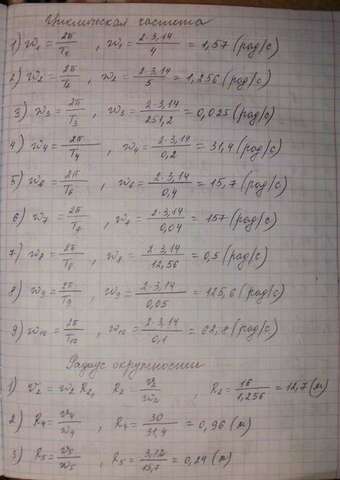 Циклическая частота
1) w₁ = 2π/T₁ , w₁ = 2·3,14/4 = 1,57 (рад/с)
2) w₂ = 2π/T₂ , w₂ = 2·3,14/5 = 1,256 (рад/с)
3) w₃ = 2π/T₃ , w₃ = 2·3,14/251,2 = 0,025 (рад/с)
4) w₄ = 2π/T₄ , w₄ = 2·3,14/0,2 = 31,4 (рад/с)
5) w₆ = 2π/T₆ , w₆ = 2·3,14/0,4 = 15,7 (рад/с)
6) w₇ = 2π/T₇ , w₇ = 2·3,14/0,04 = 157 (рад/с)
7) w₈ = 2π/T₈ , w₈ = 2·3,14/12,56 = 0,5 (рад/с)
8) w₉ = 2π/T₉ , w₉ = 2·3,14/0,05 = 125,6 (рад/с)
9) w₁₀ = 2π/T₁₀ , w₁₀ = 2·3,14/0,1 = 62,8 (рад/с)
Радиус окружности
1) v₂ = w₂ R₂, R₂ = v₂/w₂ , R₂ = 16/1,256 = 12,7 (м)
2) R₄ = v₄/w₄ , R₄ = 30/31,4 = 0,96 (м)
3) R₅ = v₅/w₅ , R₅ = 3,12/15,7 = 0,24 (м)